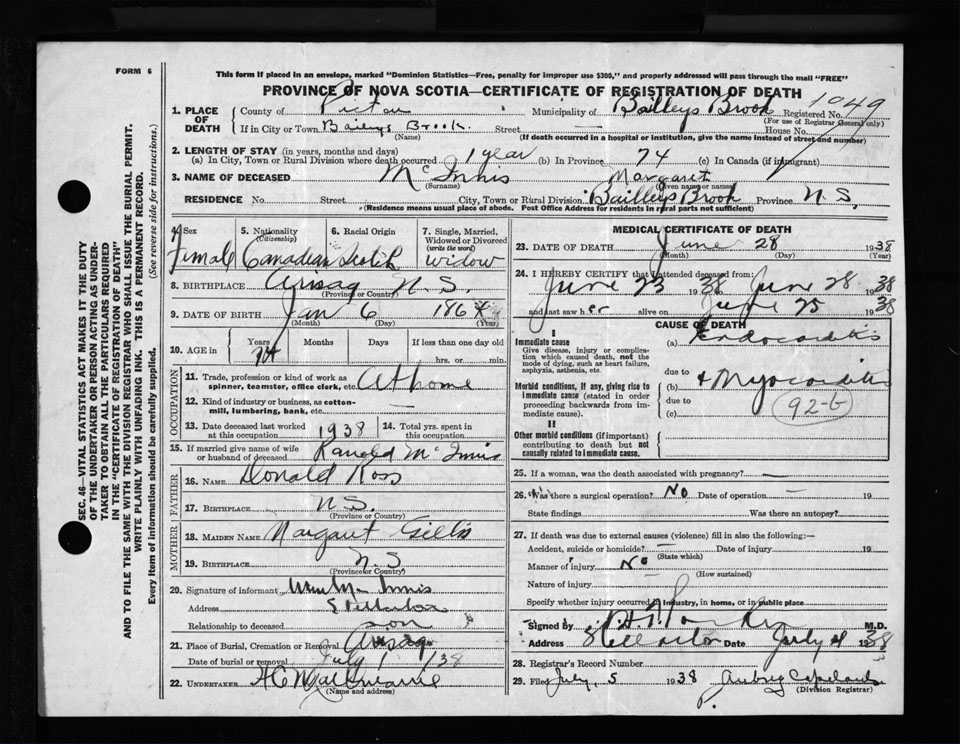 FORM 6
This form if placed in an envelope, marked "Dominion Statistics—Free, penalty for improper use $300," and properly addressed will pass through the mail "FREE"
PROVINCE OF NOVA SCOTIA—CERTIFICATE OF REGISTRATION OF DEATH
1. PLACE OF DEATH County of Pictou Municipality of Bailleys Brook Registered No. 1049
(For use of Registrar General only)
If in City or Town Baileys Brook. Street — House No.
(Name) (If death occurred in a hospital or institution, give the name instead of street and number)
2. LENGTH OF STAY (in years, months and days)
(a) In City, Town or Rural Division where death occurred 1 year (b) In Province 74 (c) In Canada (if immigrant)
3. NAME OF DECEASED McInnis Margaret
(Surname) (Given name or names)
RESIDENCE No. Street City, Town or Rural Division Bailleys Brook Province N.S.
(Residence means usual place of abode. Post Office Address for residents in rural parts not sufficient)
4. Sex Female
5. Nationality (Citizenship) Canadian
6. Racial Origin Scotch
7. Single, Married, Widowed or Divorced (write the word) widow
8. BIRTHPLACE Arisag N.S.
(Province or Country)
9. DATE OF BIRTH Jan 6 1864
(Month) (Day) (Year)
10. AGE in Years Months Days If less than one day old
74 hrs. or min.
OCCUPATION
11. Trade, profession or kind of work as spinner, teamster, office clerk, etc. At home
12. Kind of industry or business, as cotton-mill, lumbering, bank, etc. —
13. Date deceased last worked at this occupation 1938
14. Total yrs. spent in this occupation
15. If married give name of wife or husband of deceased Ranold McInnis
FATHER
16. NAME Donald Ross
17. BIRTHPLACE N.S.
(Province or Country)
MOTHER
18. MAIDEN NAME Margaret Gillis
19. BIRTHPLACE N.S
(Province or Country)
20. Signature of informant Innis
Address
Relationship to deceased son
21. Place of Burial, Cremation or Removal Arisag
Date of burial or removal July 1 /38
22. UNDERTAKER
(Name and address)
MEDICAL CERTIFICATE OF DEATH
23. DATE OF DEATH June 28 1938
(Month) (Day)
24. I HEREBY CERTIFY that I attended deceased from:
June 23 1938 June 28 1938
and last saw her alive on June 25 1938
CAUSE OF DEATH
I
Immediate cause (a) Endocarditis
Give disease, injury or complication which caused death, not the mode of dying, such as heart failure, asphyxia, asthenia, etc.
due to
Morbid conditions, if any, giving rise to immediate cause (stated in order proceeding backwards from immediate cause). (b) + Myocarditis
due to
(c) 92-b
II
Other morbid conditions (if important) contributing to death but not causally related to immediate cause.
25. If a woman, was the death associated with pregnancy? —
26. Was there a surgical operation? No Date of operation — 19
State findings Was there an autopsy?
27. If death was due to external causes (violence) fill in also the following:—
Accident, suicide or homicide? — Date of injury 19
(State which)
Manner of injury No
(How sustained)
Nature of injury
Specify whether injury occurred in industry, in home, or in public place
Signed by M.D.
Address Date July 1938
28. Registrar's Record Number
29. Filed July, 5 1938 Aubrey Copeland
(Division Registrar)
SEC. 46—VITAL STATISTICS ACT MAKES IT THE DUTY
OF THE UNDERTAKER OR PERSON ACTING AS UNDER-
TAKER TO OBTAIN ALL THE PARTICULARS REQUIRED
IN THE "CERTIFICATE OF REGISTRATION OF DEATH"
AND TO FILE THE SAME WITH THE DIVISION REGISTRAR WHO SHALL ISSUE THE BURIAL PERMIT.
WRITE PLAINLY WITH UNFADING INK. THIS IS A PERMANENT RECORD.
Every item of information should be carefully supplied. (See reverse side for instructions.)